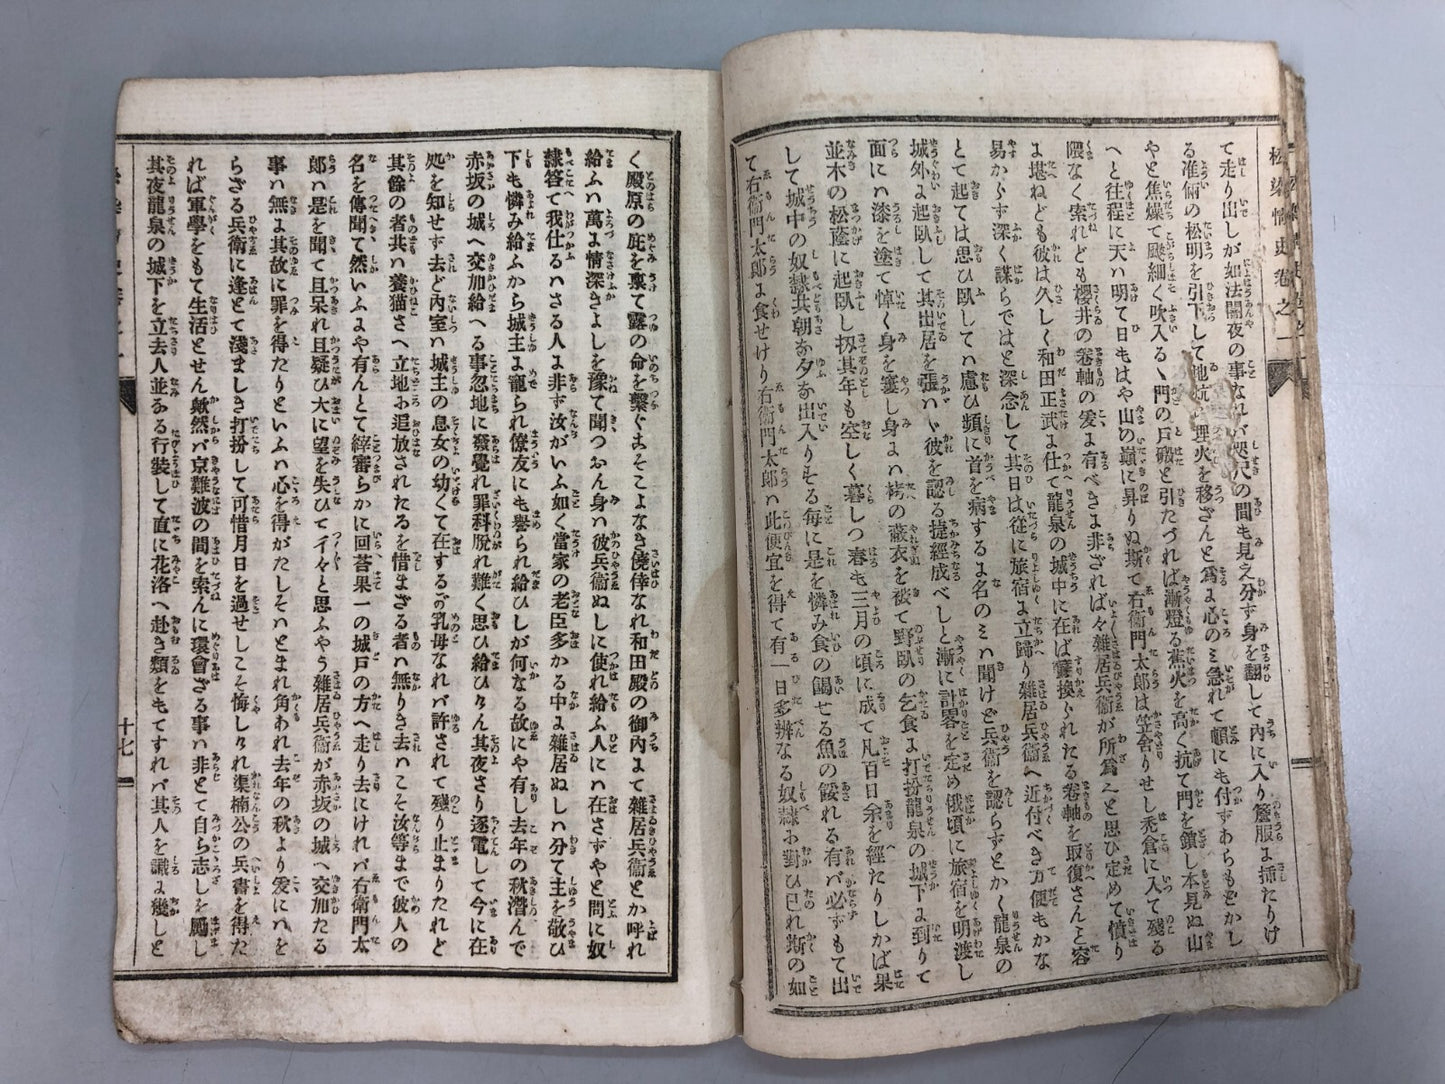 松染情史卷之一
て走り出しが如法闇夜の事なれバ咫尺の間も見え分ず身を翻して内に入り簷服ゟ挿たりけ
る准備の松明を引下して地坑ゟ埋火を移さんと爲ゟ心のミ急れて頓にも付ずあらもどかし
やと焦燥て颼細く吹入るゝ門の戸礑と引たづれば漸燈る蕉火を高く抗て門を鎖し本見ぬ山
へと往程に天ハ明て日もはや山の巓に昇りぬ斯て右衞門太郎は笠舍りせし禿倉に入て殘る
隈なく索れども櫻井の卷軸の爰ゟ有べきゟ非ざれば雜居兵衞が所爲と思ひ定めて憤り
ゟ堪ねども彼は久しく和田正武ゟ仕て龍泉の城中に在ば竊換られたる卷軸を取復さんと容
易からず深く謀らではと深念して其日は徒に旅宿ゟ立歸り雜居兵衞へ近付べき方便もかな
とて起ては思ひ臥してハ慮ひ頻に首を病するゟ名のミハ聞けど兵衞を認らずとかく龍泉の
城外ゟ起臥して其出居を張ハゞ彼を認る捷經成べしと漸に計畧を定め俄頃に旅宿を明渡し
面にハ漆を塗て悼く身を窶し身ゟハ栲の藏衣を被て野臥の乞食ゟ打扮龍泉の城下ゟ到りて
並木の松蔭に起臥し扨其年も空しく暮しつ春も三月の頃に成て凡百日余を經たりしかば果
して城中の奴隷共朝な夕な出入りそる毎に是を憐み食の餲せる魚の餒れる有バ必ずもて出
て右衞門太郎ゟ食せけり右衞門太郎ハ此便宜を得て有一日多辨なる奴隷ゟ對ひ巳れ斯の如
く殿原の庇を稟て露の命を繋ぐあそこよなき僥倖なれ和田殿の御内ゟて雜居兵衞とか呼れ
給ふハ萬ゟ情深きよしを豫て聞つおん身ハ彼兵衞ぬしに使れ給ふ人にハ在さずやと問に奴
隷答て我仕るハさる人ゟ非ず汝がいふ如く當家の老臣多かる中ゟ雜居ぬしハ分て主を敬ひ
下も憐み給ふから城主ゟ寵られ僚友にも譽られ給ひしが何なる故にや有し去年の秋潛んで
赤坂の城へ交加給へる事忽地に發覺れ罪科脱れ難く思ひ給ひけん其夜さり逐電して今に在
処を知せず去ど内室ハ城主の息女の幼くて在するが乳母なれバ許されて殘り止まりたれど
其餘の者共ハ養猫さへ立地ゟ追放されたるを惜まざる者ハ無りき去ハこそ汝等まで彼人の
名を傳聞て然いふゟや有んとて縡審らかに回荅果一の城戸の方へ走り去にけれバ右衞門太
郎ハ是を聞て且呆れ且疑ひ大に望を失ひて彳々と思ふやう雜居兵衞が赤坂の城へ交加たる
事ハ無ゟ其故に罪を得たりといふハ心を得がたしそハとまれ角あれ去年の秋より爰にハを
らざる兵衞に逢とて淺ましき打扮して可惜月日を過せしこそ悔しけれ渠楠公の兵書を得た
れば軍學をもて生活とせん歟然バ京難波の間を索んに環會ざる事ハ非とて自ら志しを勵し
其夜龍泉の城下を立去人並みる行裝して直に花洛へ赴き類をもてすれバ其人を識ゟ幾しと
十七